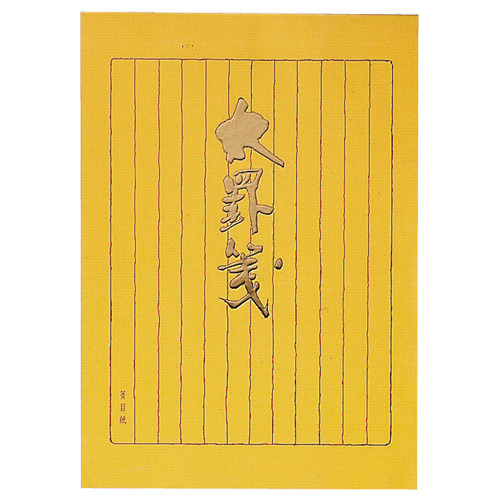 大罫箋
苦目紙